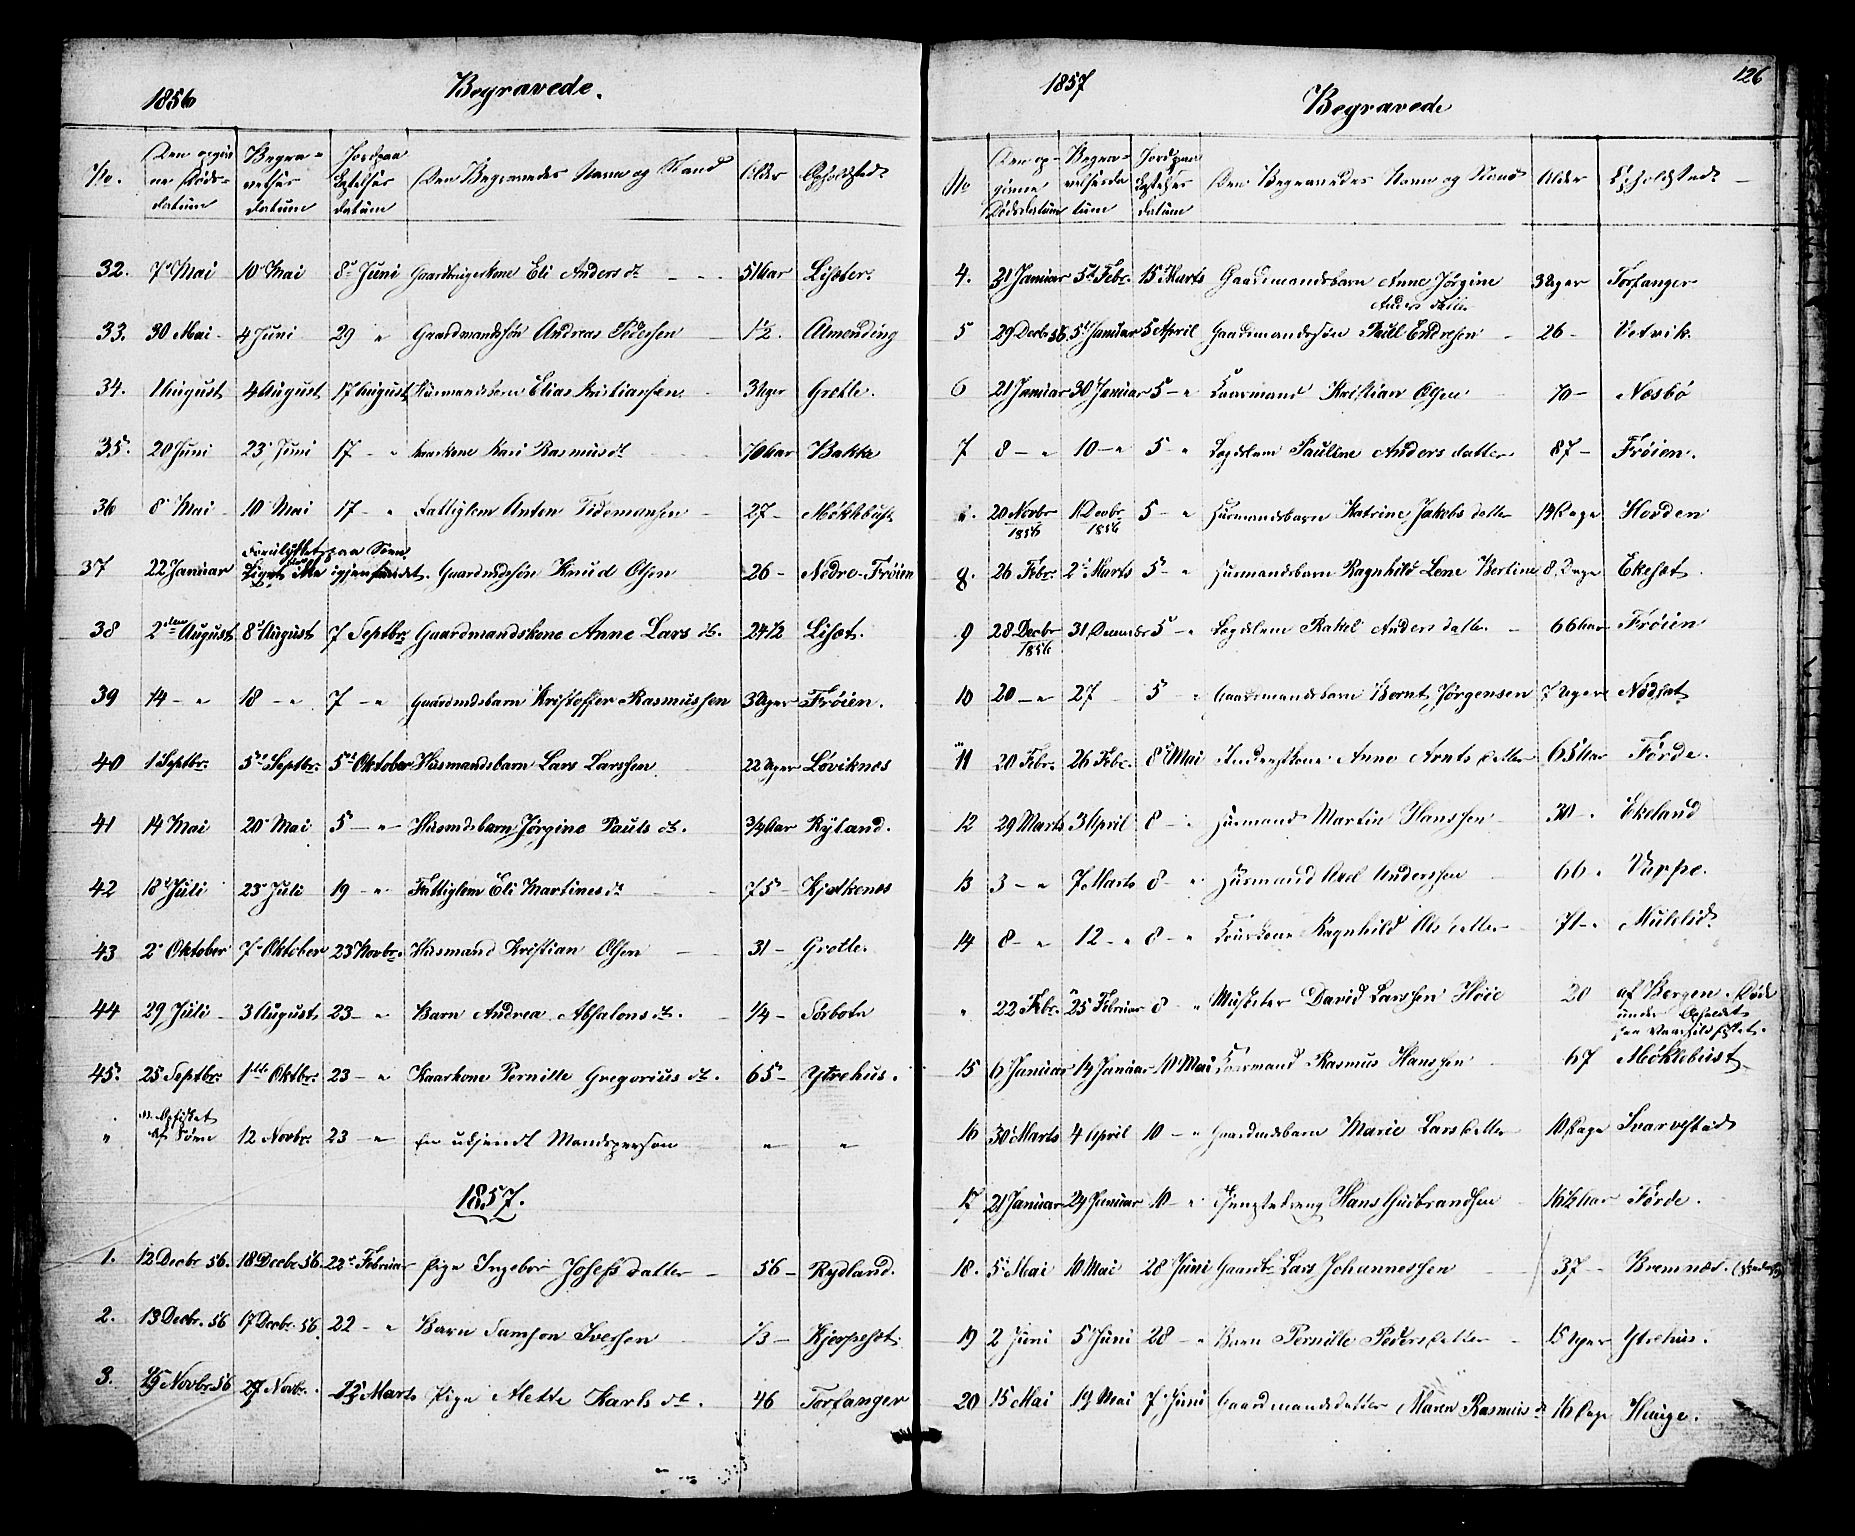 1856 Begravede.
No. Den opgivne Dødsdatum Begravelsesdatum Jordpaakastelsesdatum Den Begravedes Navn og Stand Alder Opholdsted
32. 7 Mai 10 Mai 8 Juni Gaardbrugerkone Eli Anders dt 51 Aar Liset.
33. 30 Mai 4 Juni 29 " Gaardmandssøn Andreas Pedersen 1½ Almending
34. 1 August 4 August 17 August Husmandsbarn Elias Kristiansen 3 Uger Grotle.
35. 20 Juni 23 Juni 17 " Kaarkone Kari Rasmusdt 70 Aar Bakke
36 8 Mai 10 Mai 17 " Fattiglem Anton Tidemansen 27 Møklebust
37 22 Januar Forulykket paa Søen Liget ikke igjenfundet. Gaardmdssøn Knud Olsen 26 Nedre-Frøien
38 2den August 8 August 7 Septbr Gaardmandskone Anne Lars dt. 24½ Liset.
39 14 " 18 " 7 " Gaardmdsbarn Kristoffer Rasmussen 3 Uger Frøien.
40 1 Septbr. 5 Septbr. 5 Oktober Husmandsbarn Lars Larssen 22 Uger Løviknes
41 14 Mai 20 Mai 5 " Husmdsbarn Jørgine Pauls dt. 3/4 Aar Ryland.
42 18 Juli 23 Juli 19 " Fattiglem Eli Martinesdt 75 Kjelkenes
43 2 Oktober 7 Oktober 23 Novbr. Husmand Kristian Olsen 31 Grotle.
44 29 Juli 3 August 23 " Barn Andrea Absalons dt. 1/4 Sørbotn
45. 25 Septbr. 1ste Oktbr. 23 " Kaarkone Pernille Gregorius dt. 65 Ytrehus.
" Opfisket af Søen 12 Novbr. 23 " En ukjendt Mandsperson " "
1857.
1. 12 Decbr 56. 18 Decbr 56. 22 Februar Pige Ingebor Josefsdatter 56 Rydland.
2. 13 Decbr. 56 17 Decbr. 56. 22 " Barn Samson Iversen 1/3 Kjerpeset.
3. Novbr 56 27 Novbr. Marts Pige Mette Karls dt. 46 Torfanger
1857 Begravede 126
No Den opgivne Dødsdatum Begravelsesdatum Jordpaakastelsesdatum Den Begravedes Navn og Stand Alder Opholdsted
4. 31 Januar 5 Febr. 15 Marts Gaardmandsbarn Anne Jørgine
Andersdatter 3 Uger Torfanger
5 29 Decbr 56. 5 Januar 5 April Gaardmandssøn Paul Endresen 26 Vetvik.
6 21 Januar 30 Januar 5 " Kaarmand Kristian Olsen 70 Nesbø
7 8 " 10 " 5 " Lægdslem Pauline Andersdatter 87 Frøien.
". 20 Novbr 1856 1 Decbr 1856 5 " Husmandsbarn Katrine Jakobsdatter 14 Dage Hovden
8. 26 Febr. 2 Marts 5 " Husmandsbarn Ragnhild Lene Bertine 8 Dage Ekeset.
9 28 Decbr 1856 31 December 5 " Lægdslem Rakel Andersdatter 66 Aar Frøien
10 20 " 27 5 " Gaardmandsbarn Bernt Jørgensen 7 Uger Nødset
11 20 Febr. 26 Febr. 8 Mai Anne Arntsdatter 65 Aar Førde.
12 29 Marts 3 April 8 " Husmand Martin Hanssen 30 " Ekeland
13 3 " 7 Marts 8 " Husmand Axel Anderssen 66 " Vappe.
14 8 " 12 " 8 " Kaarkone Ragnhild Olsdatter 71 " Mulelid
" 22 Febr. 25 Februar 8 " Musketer David Larssen Høie 20 af Bergen. Død
under Opholdet
paa Vaarsildfisket.
15 6 Januar 14 Januar 10 Mai Kaarmand Rasmus Hanssen 67 Møklebust
16 30 Marts 4 April 10 " Gaardmdsbarn Marie Larsdatter 10 Dage Svarvestad
17 21 Januar 24 Januar 10 " Tjenstedreng Hans Gudbrandsen 16½ Aar Førde.
18. 5 Mai 10 Mai 28 Juni Gaardbr Lars Johannessen 37 Bremnes.
19 2 Juni 5 Juni 28 " Barn Pernille Pedersdatter 15 Uger Ytrehus.
20 15 Mai 19 Mai 7 Juni Gaardmandsdatter Maren Rasmus dt 16 Dage Hauge.